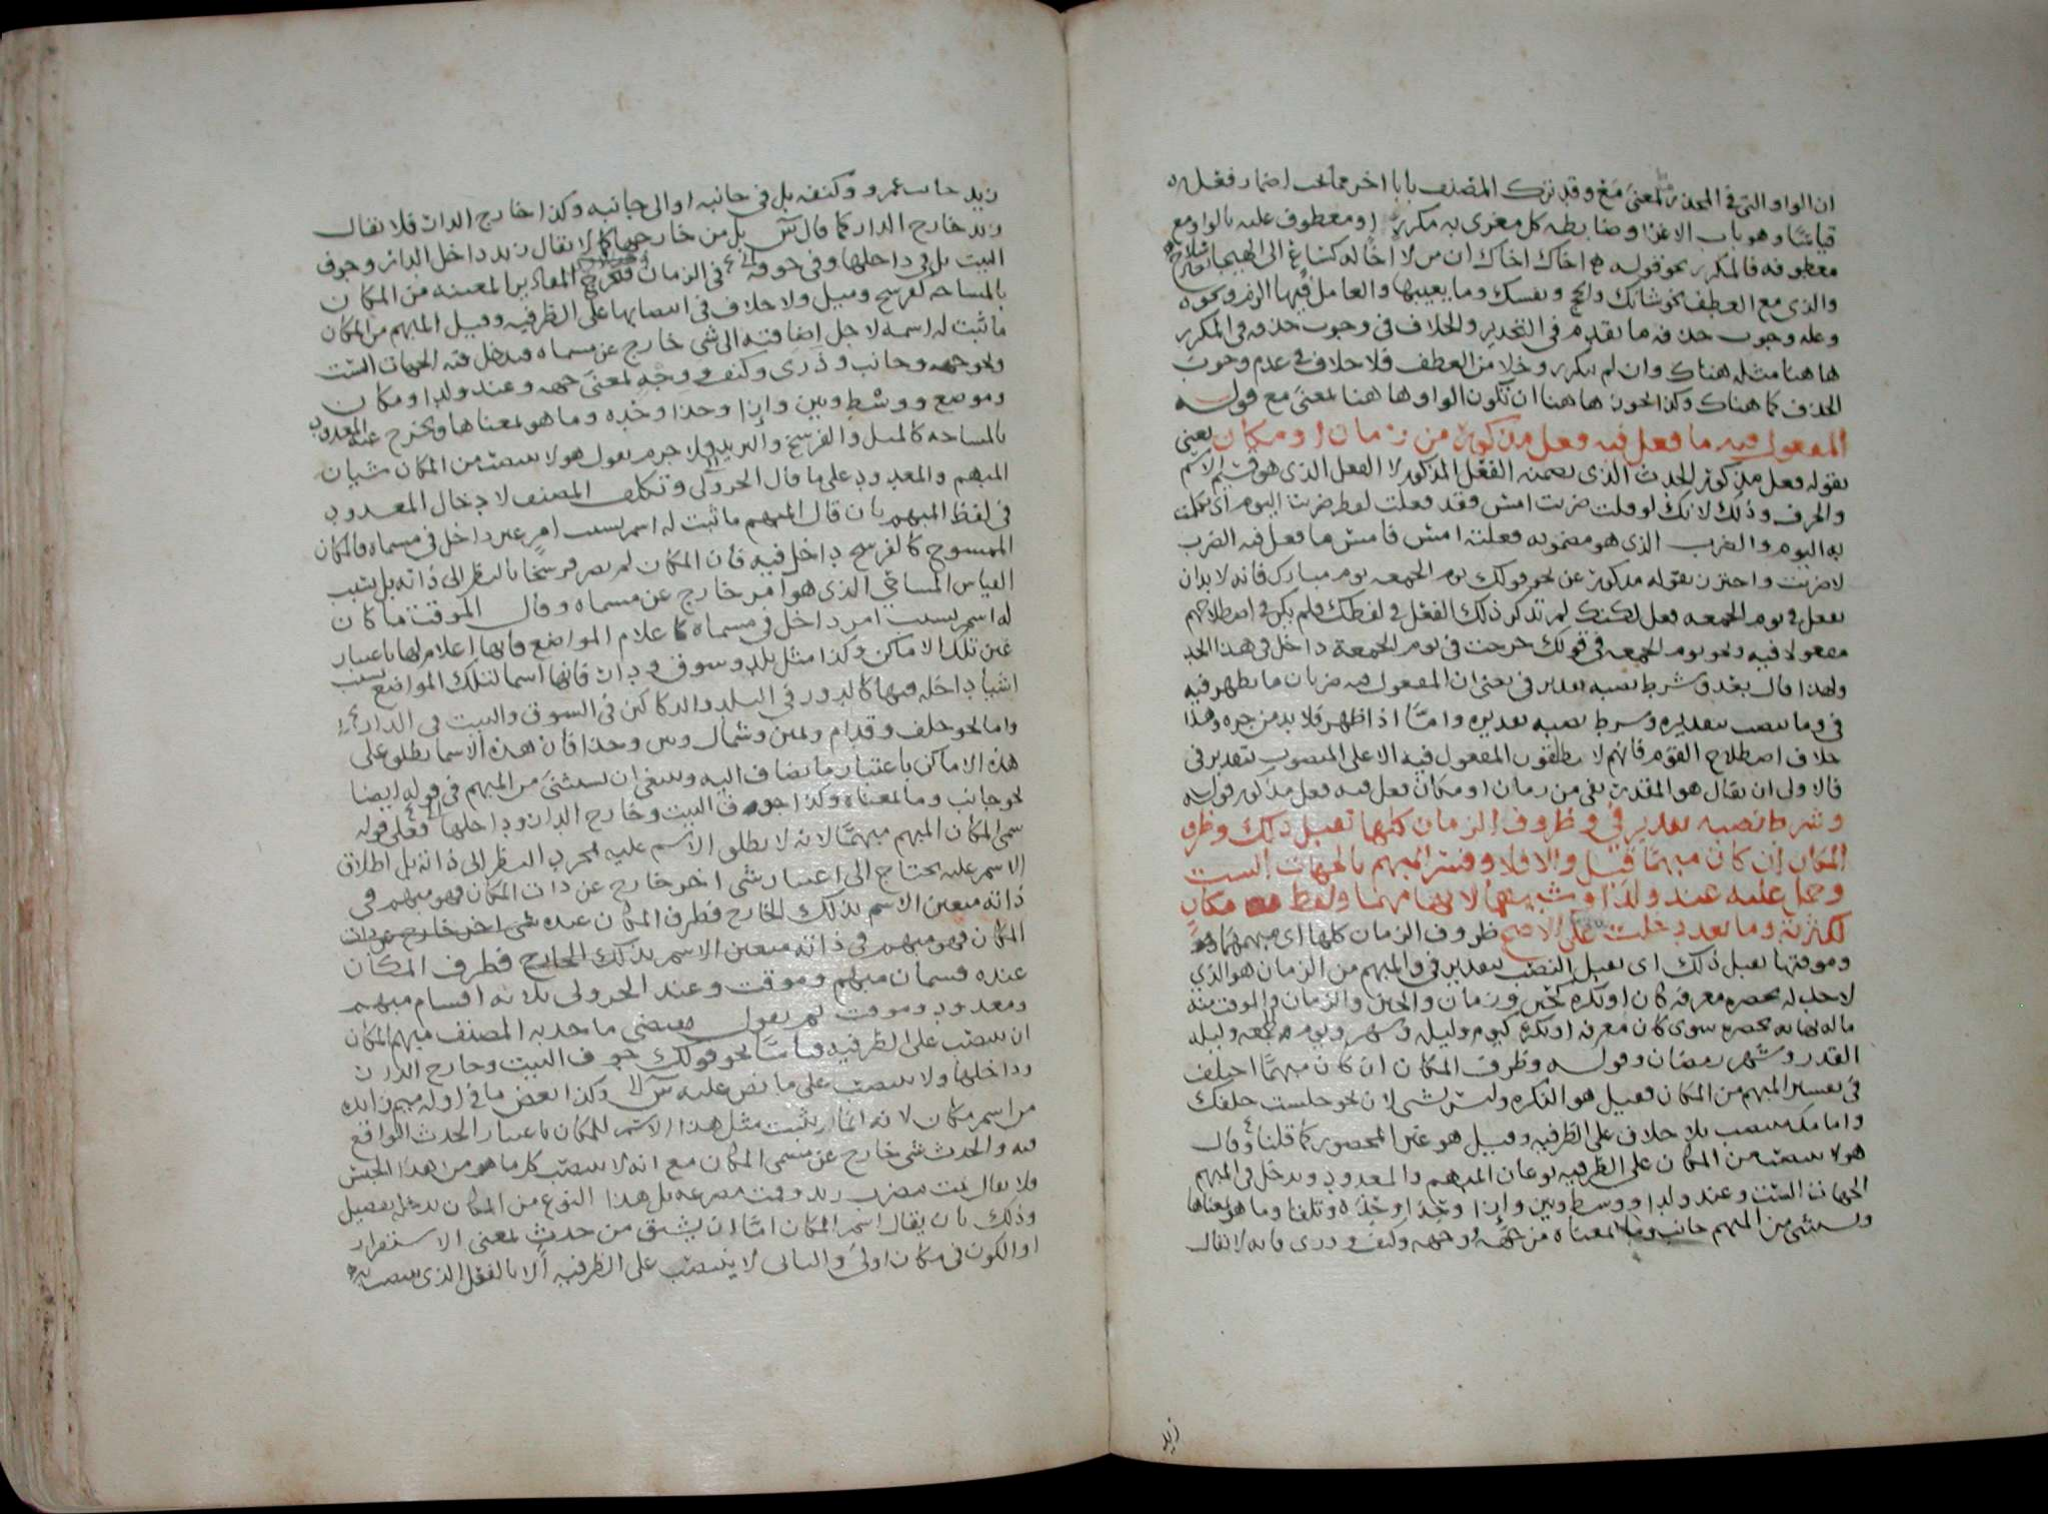 ان الواو التى فى المحذر بمعنى مع وقد ترك المصنف بابا اخر مما يجب اضمار فعله
قياسا وهو باب الاغرا وضابطه كل مغرى به مكرر او معطوف عليه بالواو مع
معطوفه فالمكرر نحو قوله اخاك اخاك ان من لا اخا له كساع الى الهيجا بغير سلاح
والذى مع العطف نحو شانك والحج ونفسك وما يعيبها والعامل فيها الزم ونحوه
وعلة وجوب حذفه ما تقدم فى التحذير والخلاف فى وجوب حذفه فى المكرر
هاهنا مثله هناك وان لم يكرر وخلا من العطف فلا خلاف فى عدم وجوب
الحذف كما هناك وكذا يجوز هاهنا ان تكون الواو هاهنا بمعنى مع قوله
المفعول فيه ما فعل فيه فعل مذكور من زمان او مكان يعنى
بقوله فعل مذكور الحدث الذى تضمنه الفعل المذكور لا الفعل الذى هو قسيم الاسم
والحرف وذلك لانك لو قلت ضربت امس فقد فعلت لفظ ضربت اليوم اى تكلمت
به اليوم والضرب الذى هو مضمونه فعلته امس فامس ما فعل فيه الضرب
لا ضربت واحترز بقوله مذكور عن نحو قولك يوم الجمعه يوم مبارك فانه لا بد ان
يفعل فى يوم الجمعه فعل لكنك لم تذكر ذلك الفعل فى لفظك فلم يكن فى اصطلاحهم
مفعولا فيه ونحو يوم الجمعه فى قولك خرجت فى يوم الجمعة داخل فى هذا الحد
ولهذا قال بعد وشرط نصبه تقدير فى يعنى ان المفعول فيه ضربان ما يظهر فيه
فى وما ينصب بتقديره وشرط نصبه تقديره واما اذا ظهر فلا بد من جره وهذا
خلاف اصطلاح القوم فانهم لا يطلقون المفعول فيه الا على المنصوب بتقدير فى
فالاولى ان يقال هو المقدر بفى من زمان او مكان فعل فيه فعل مذكور قوله
وشرط نصبه تقدير فى وظروف الزمان كلها تقبل ذلك وظرف
المكان ان كان مبهما قبل والا فلا وفسر المبهم بالجهات الست
وحمل عليه عند ولدا وشبههما لابهامهما ولفظ مكان
لكثرته وما بعد دخلت على الاصح ظروف الزمان كلها اى مبهمها
وموقتها تقبل ذلك اى تقبل النصب بتقدير فى والمبهم من الزمان هو الذى
لا حد له يحصره معرفة كان او نكرة كحين وزمان والحين والزمان والموقت منه
ما له نهاية تحصره سوى كان معرفة او نكرة كيوم وليله وشهر ويوم الجمعه وليله
القدر وشهر رمضان وقوله وظرف المكان ان كان مبهما اختلف
فى تفسير المبهم من المكان فقيل هو النكره وليس بشى لان نحو جلست خلفك
وامامك ينصب بلا خلاف على الظرفيه وقيل هو غير المحصور كما قلنا وقال
هو لا ينصب من المكان على الظرفيه نوعان المبهم والمعدود ويدخل فى المبهم
الجهات الست وعند ولدا ووسط وبين وازا وحذا وحذه وتلقا وما هو بمعناها
ويستثنى من المبهم جانب وما بمعناه من جهه ووجهه وكنف وذرى فانه لا يقال
زيد
زيد جانب عمرو وكنفه بل فى جانبه او الى جانبه وكذا خارج الدار فلا يقال
زيد خارج الدار كما قال س بل من خارجها كما لا يقال زيد داخل الدار وجوف
البيت بل فى داخلها وفى جوفه فى الزمان المقادير المعينه من المكان
بالمساحه كفرسخ وميل ولا خلاف فى انتصابها على الظرفيه وقيل المبهم من المكان
ما ثبت له اسمه لاجل اضافته الى شى خارج عن مسماه فيدخل فيه الجهات الست
ونحو جهه وجانب وذرى وكنف ووجه بمعنى جهه وعند ولدا ومكان
وموضع ووسط وبين وازا وحذا وحذه وما هو بمعناها ويخرج عنه المعدود
بالمساحه كالميل والفرسخ والبريد ولا جرم يقول هو لا ينصب من المكان شيان
المبهم والمعدود على ما قال الجزولى وتكلف المصنف لادخال المعدود
فى لفظ المبهم بان قال المبهم ما ثبت له اسم بسبب امر غير داخل فى مسماه فالمكان
الممسوح كالفرسخ داخل فيه فان المكان لم يصر فرسخا بالنظر الى ذاته بل بسبب
القياس المساحى الذى هو امر خارج عن مسماه وقال الموقت ما كان
له اسم بسبب امر داخل فى مسماه كاعلام المواضع فانها اعلام لها باعتبار
عين تلك الاماكن وكذا مثل بلد وسوق ودار فانها اسما لتلك المواضع بسبب
اشيا داخله فيها كالدور فى البلد والدكاكين فى السوق والبيت فى الدار
واما نحو خلف وقدام ويمين وشمال وبين وحذا فان هذه الاسما تطلق على
هذه الاماكن باعتبار ما تضاف اليه وينبغى ان يستثنى من المبهم فى قوله ايضا
نحو جانب وما بمعناه وكذا جوف البيت وخارج الدار وداخلها فعلى قوله
سمى المكان المبهم مبهما لانه لا يطلق الاسم عليه بمجرد النظر الى ذاته بل اطلاق
الاسم عليه يحتاج الى اعتبار شى اخر خارج عن ذات المكان فهو مبهم فى
ذاته متعين الاسم بذلك الخارج فظرف المكان عنده شى اخر خارج عن ذات
المكان فهو مبهم فى ذاته متعين الاسم بذلك الخارج فظرف المكان
عنده قسمان مبهم وموقت وعند الجزولى ثلاثه اقسام مبهم
ومعدود وموقت ثم نقول مقتضى ما حد به المصنف مبهم المكان
ان ينصب على الظرفيه قياسا نحو قولك جوف البيت وخارج الدار
وداخلها ولا ينصب على ما نص عليه س وكذا بعض ما فى اوله ميم زايده
من اسم مكان لانه انما يثبت مثل هذا الاسم للمكان باعتبار الحدث الواقع
فيه والحدث شى خارج عن مسمى المكان مع انه لا ينصب كل ما هو من هذا الجنس
فلا يقال نمت مضرب زيد وقمت مصرعه بل هذا النوع من المكان يدخله تفصيل
وذلك بان يقال اسم المكان اما ان يشتق من حدث بمعنى الاستقرار
او الكون فى مكان اولا والثانى لا ينتصب على الظرفيه الا بالفعل الذى ينتصب به